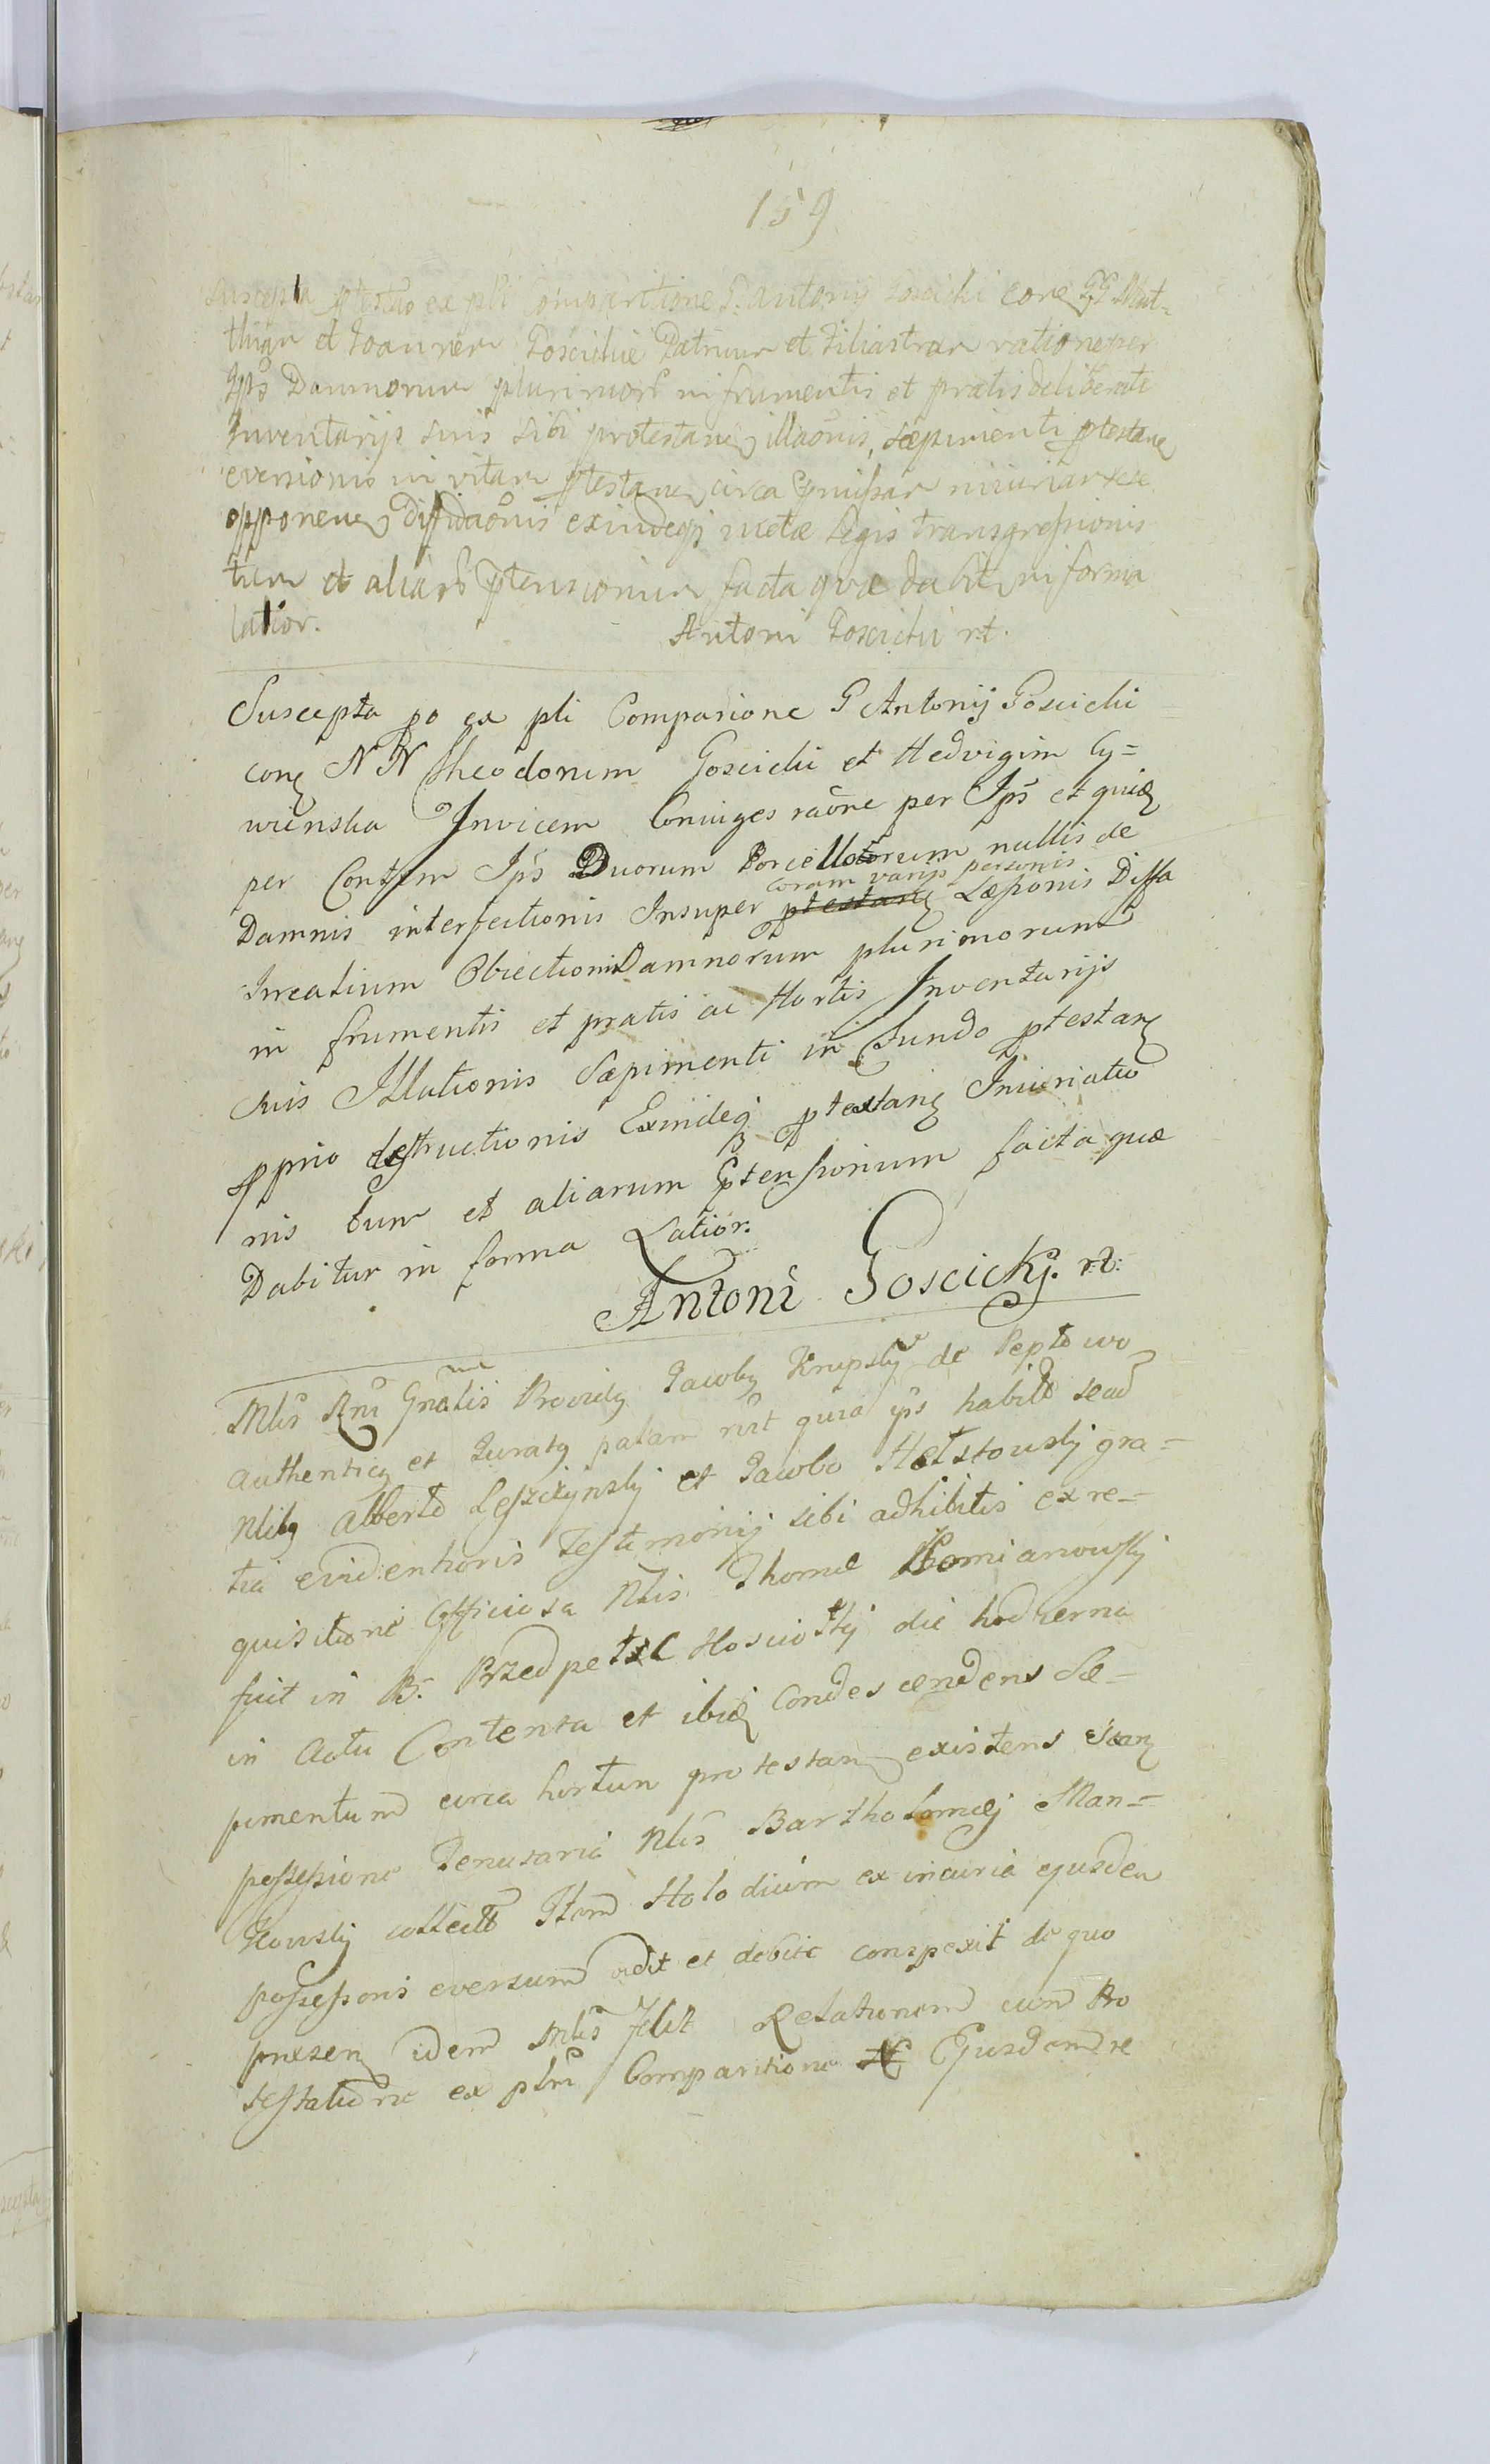 159
Suscepta ptestao ex pli Comparitione G. Antonij Goscicki cone GG Mat=
thiam et Joannem Goscickie Patruum et Filiastrum ratione per
Ipso Damnorum plurimorũ in frumentis et pratis deliberate
Inventarijs suis sibi protestanę illaõnis, sæpimenti ptestanę
eversionis in vitam ptestanę circa pmissar iniuriar sese
opponenę Diffidaõnis exindeqz metæ legis transgressionis
tum et aliarũ ptensionum facta quæ dabitę in forma
latior.
Antoni Goscicki rt.
Suscepta po ex pli Comparione G Antonij Goscicki
conę NN Theodorum Goscicki et Hedvigim Cy=
wienska Invicem Coniuges raõne per Ips et quidę
per Contem Ips Duorum Porcellorum nullis de
Damnis interfectionis Insuper ptestanę coram varijs personis Læsionis Diffa
Irrealium Obiectionis Damnorum plurimorum
in frumentis et pratis ac Hortis Inventarijs
suis Illationis Sæpimenti in Fundo ptestanę
pprio destructionis Exindeqz ptestanę Iniuriatio
nis tum et aliarum Ptensionum facta quæ
Dabitur in forma Latior.
Antoni Goscickj. rt:
Mlis Rni Gnalis Providg Jacobg Krupsky de Peptowo
authenticg et Juratg palam rlt quia ips habitd secud
Nlibg Alberto Leszczynskj et Jacobo Helstouskj gra=
tia evidentioris Testimonij sibi adhibitis ex re=
quisitione Officiosa Nlis Thomæ Komianowskj
fuit in B. Przedpelce Hosciostkj die hodierna
in Actu Contenta et ibidę Condescendens Sæ=
pimentum circa hortum protestanę existens
possessione Tenutaria Nlis Bartholomæj Man=
kowskj Item Holodium ex incuria ejusdem
possessoris eversum vidit et debite conspexit de quo
præsenę idem Mlis Felit Relationem cum Pro
testatione ex plri Comparitione Ejusdem re